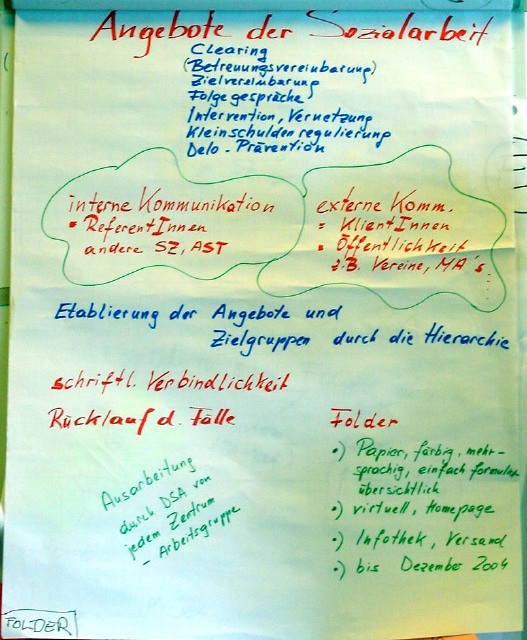 Angebote der Sozialarbeit
Clearing
(Betreuungsvereinbarung)
Zielvereinbarung
Folgegespräche
Intervention, Vernetzung
Kleinschuldenregulierung
Delo - Prävention
interne Kommunikation
ReferentInnen
andere SZ, AST
externe Komm.
KlientInnen
Öffentlichkeit
z.B. Vereine, MA's
Etablierung der Angebote und
Zielgruppen durch die Hierarchie
schriftl. Verbindlichkeit
Rücklauf d. Fälle
Ausarbeitung
durch DSA von
jedem Zentrum
- Arbeitsgruppe
Folder
•) Papier, färbig, mehr-
sprachig, einfach formuliert
übersichtlich
•) virtuell, Homepage
•) Infothek, Versand
•) bis Dezember 2004
FOLDER